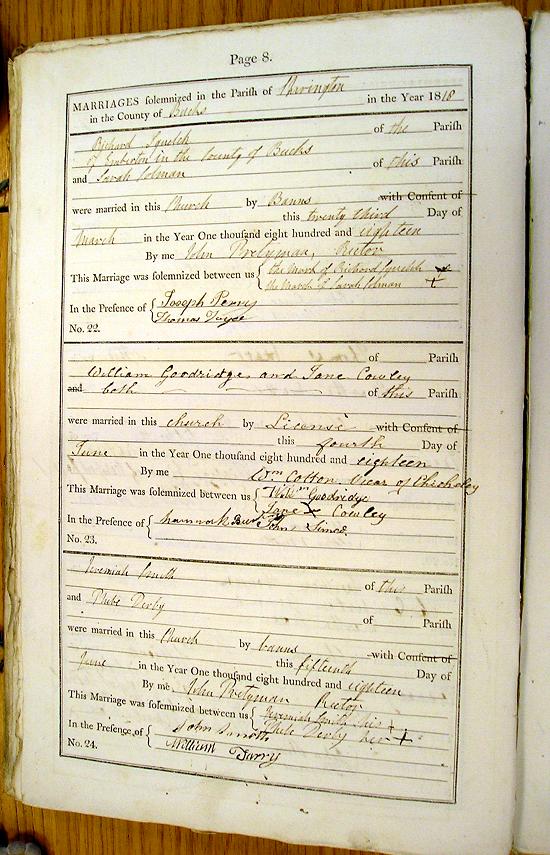 Page 8.
MARRIAGES solemnized in the Parish of Sherington
in the County of Bucks in the Year 1818
Richard Squelch of the Parish
of Emberton in the County of Bucks
and Sarah Colman of this Parish
were married in this Church by Banns with Consent of
this twenty third Day of
March in the Year One thousand eight hundred and eighteen
By me John Pretyman, Rector
This Marriage was solemnized between us { the Mark of Richard Squelch x
the Mark of Sarah Colman +
In the Presence of { Joseph Perry
Thomas Joyce
No. 22.
of Parish
William Goodridge and Jane Cowley
and both of this Parish
were married in this church by License with Consent of
this fourth Day of
June in the Year One thousand eight hundred and eighteen
By me Wm Cotton. Vicar of Chicheley
This Marriage was solemnized between us { Willm Goodridge
Jane X Cowley
In the Presence of { John
No. 23.
Jeremiah Smith of this Parish
and Phebe Derby of Parish
were married in this Church by banns with Consent of
this fifteenth Day of
June in the Year One thousand eight hundred and eighteen
By me John Pretyman Rector
This Marriage was solemnized between us { Jeremiah Smith his +
Phebe Derby her +
In the Presence of { John Smith
William Darry
No. 24.